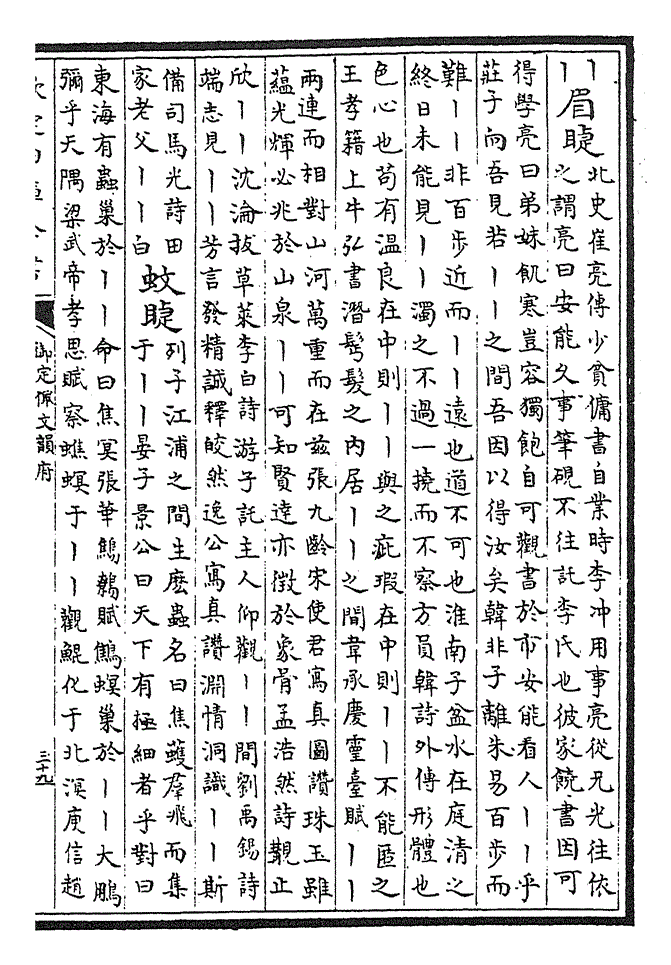 丨
丨眉睫北史崔亮傳少貧傭書自業時李冲用事亮從兄光往依
之謂亮曰安能久事筆硯不往託李氏也彼家饒書因可
得學亮曰弟妹飢寒豈容獨飽自可觀書於市安能看人丨丨乎
莊子向吾見若丨丨之間吾因以得汝矣韓非子離朱易百步而
難丨丨非百步近而丨丨遠也道不可也淮南子盆水在庭清之
終日未能見丨丨濁之不過一撓而不察方員韓詩外傳形體也
色心也苟有温良在中則丨丨與之疵瑕在中則丨丨不能匿之
王孝籍上牛弘書潛鬢髮之内居丨丨之間韋承慶靈臺賦丨丨
兩連而相對山河萬重而在兹張九齡宋使君寫真圖讚珠玉雖
藴光輝必兆於山泉丨丨可知賢達亦徴於象骨孟浩然詩覯止
欣丨丨沈淪拔草萊李白詩游子託主人仰觀丨丨間劉禹錫詩
端志見丨丨芳言發精誠釋皎然逸公寫真讚淵情洞識丨丨斯
備司馬光詩田
家老父丨丨白
蚊睫列子江浦之間生麽蟲名曰焦螟羣飛而集
于丨丨晏子景公曰天下有極細者乎對曰
東海有蟲巢於丨丨命曰焦冥張華鷦鷯賦鷦螟巢於丨丨大鵬
彌乎天隅梁武帝孝思賦察蟭螟于丨丨觀鯤化于北溟庾信趙
御定佩文韻府
三十九